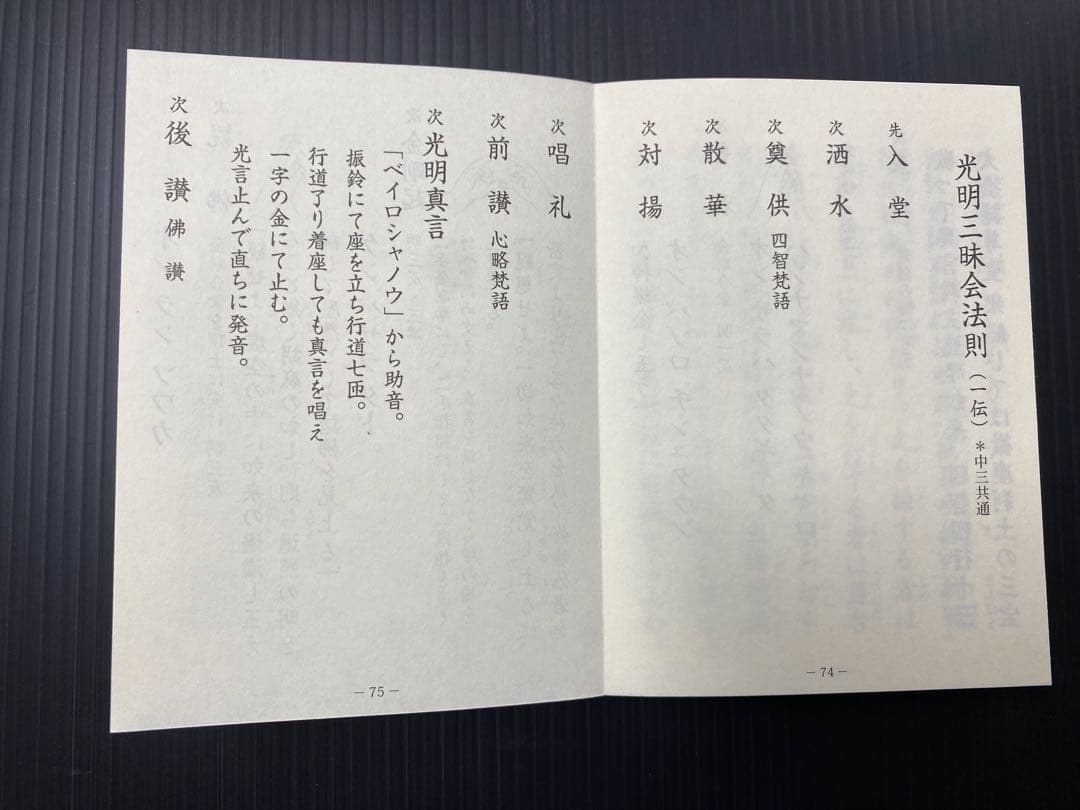 光明三昧会法則（一伝）＊中三共通
先 入堂
次 洒水
次 奠供 四智梵語
次 散華
次 対揚
― 74 ―
次 唱礼
次 前讃 心略梵語
次 光明真言
「ベイロシャノウ」から助音。
振鈴にて座を立ち行道七匝。
行道了り着座しても真言を唱え
一字の金にて止む。
光言止んで直ちに発音。
次 後讃 佛讃
― 75 ―